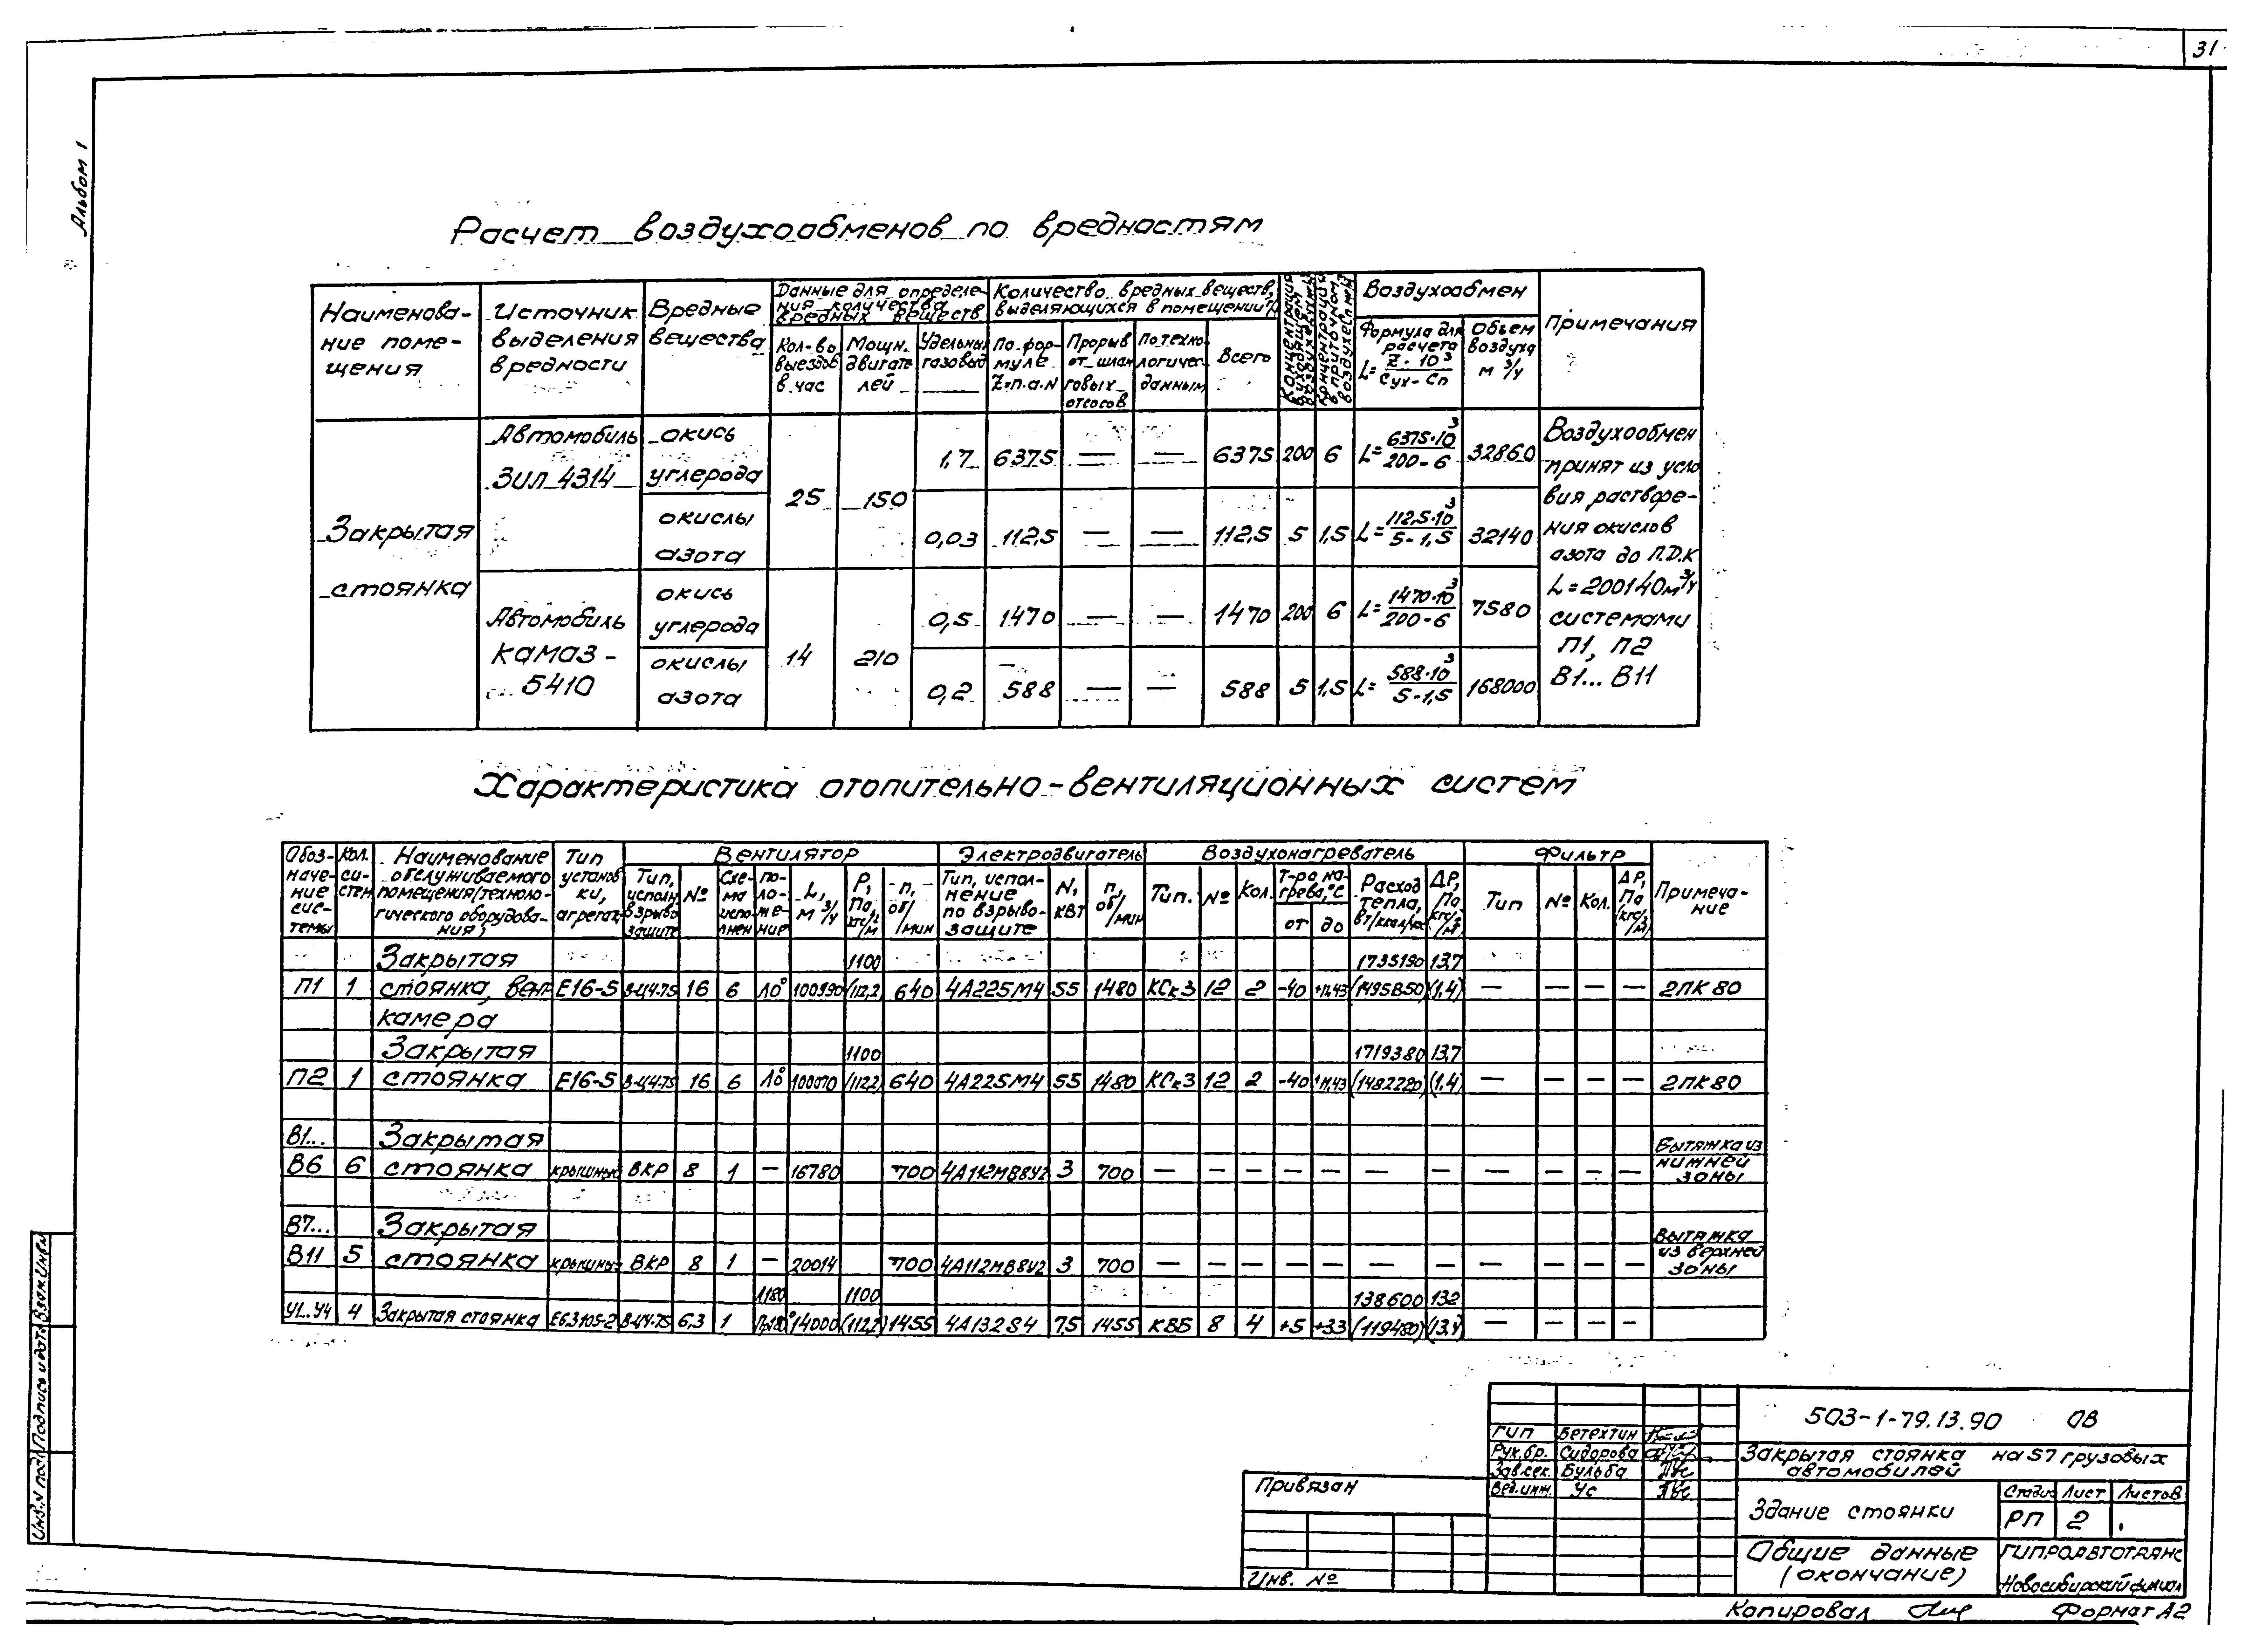 31
Альбом 1
Расчет воздухообменов по вредностям
Наименова-
ние поме-
щения
Источник
выделения
вредности
Вредные
вещества
Данные для определе-
ния количества
вредных веществ
Кол-во
выездов
в час
Мощн.
двигате
лей
Удельные
газовыд
Количество вредных веществ,
выделяющихся в помещении
По фор-
муле
Z=п.а.N
Прорыв
от шлан
говых
отсосов
По техно-
логичес.
данным
Всего
Концентрация
в уходящем
воздухе
Концентрация
в приточном
воздухе
Воздухообмен
Формула для
расчета
L= Z·10³ / Cух-Сп
Объем
воздуха
м³/ч
Примечания
Закрытая
стоянка
Автомобиль
ЗИЛ 4314
окись
углерода
25 150 1,7 6375 — — 6375 200 6 L= 6375·10³ / 200-6 32860
окислы
азота
0,03 112,5 — — 112,5 5 1,5 L= 112,5·10³ / 5-1,5 32140
Автомобиль
КАМАЗ-
5410
окись
углерода
14 210 0,5 1470 — — 1470 200 6 L= 1470·10³ / 200-6 7580
окислы
азота
0,2 588 — — 588 5 1,5 L= 588·10³ / 5-1,5 168000
Воздухообмен
принят из усло
вия растворе-
ния окислов
азота до П.Д.К
L=200140м³/ч
системами
П1, П2
В1... В11
Характеристика отопительно-вентиляционных систем
Обоз-
наче-
ние
сис-
темы
Кол.
си-
стем
Наименование
обслуживаемого
помещения/техноло-
гического оборудова-
ния)
Тип
установ
ки,
агрегат
Вентилятор
Тип,
исполн
взрыво
защите
№
Схе-
ма
испо-
лнен
по-
ло-
же-
ние
L,
м³/ч
P,
Па
кгс/м²
п,
об/мин
Электродвигатель
Тип, испол-
нение
по взрыво-
защите
N,
кВт
п,
об/мин
Воздухонагреватель
Тип.
№
Кол.
Т-ра на-
грева,°С
от
до
Расход
тепла,
вт/ккал/ч
ΔР,
Па
кгс/м²
Фильтр
Тип
№
Кол.
ΔР,
Па
кгс/м²
Примеча-
ние
Закрытая 1100 1735190 13,7
П1 1 стоянка, вент. Е16-5 В-Ц4-75 16 6 Л0° 100990 (112,2) 640 4А225М4 55 1480 КСк3 12 2 -40 (1,4) — — — — 2ПК 80
камера
Закрытая 1100 1719380 13,7
П2 1 стоянка Е16-5 В-Ц4-75 16 6 Л0° 100070 (112,2) 640 4А225М4 55 1480 КСк3 12 2 -40 (1482220) (1,4) — — — — 2ПК 80
В1... Закрытая Вытяжка из
В6 6 стоянка крышный ВКР 8 1 — 16780 700 4А112МВ8У2 3 700 — — — — — — — — — — — нижней
зоны
В7... Закрытая Вытяжка
В11 5 стоянка крышный ВКР 8 1 — 20014 700 4А112МВ8У2 3 700 — — — — — — — — — — — из верхней
зоны
1100 138600 132
У1...У4 4 Закрытая стоянка Е6.3105-2 В-Ц4-75 6,3 1 14000 (112,2) 1455 4А132S4 7,5 1455 КВБ 8 4 +5 +33 (119480) (13,4) — — — —
503-1-79.13.90 ОВ
ГИП Бетехтин
Рук.бр. Сидорова
Зав.сек. Бульба
Вед.инж. Ус
Закрытая стоянка на 57 грузовых
автомобилей
Здание стоянки
Стадия Лист Листов
РП 2
Общие данные
(окончание)
ГИПРОАВТОТРАНС
Новосибирский филиал
Привязан
Инв. №
Копировал
Формат А2
Взам.инв.№
Подпись и дата
Инв.№ подл.